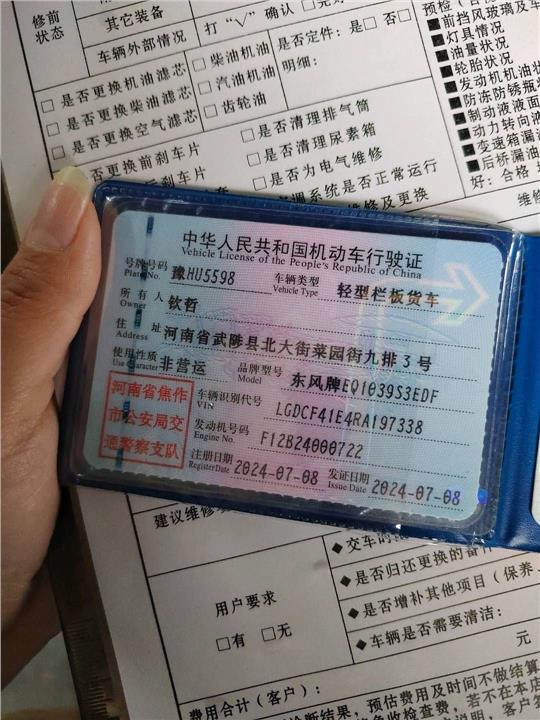 修前
状态
其它装备
打“√”确认
车辆外部情况
是否定件：是□否□
明细：
□是否更换机油滤芯
□是否更换柴油滤芯
□是否更换空气滤芯
□柴油机油
□汽油机油
□齿轮油
是否更换前刹车片
□是否清理排气筒
□是否清理尿素箱
□是否为电气维修
调系统是否正常运行
维修及更换
■前挡风玻璃及
■灯具情况
■油量状况
■轮胎状况
■发动机机油状
■防冻防锈瓶
■制动液液面
■动力转向液
■变速箱漏
■后桥漏油
好：合格
中华人民共和国机动车行驶证
Vehicle License of the People's Republic of China
号牌号码 豫HU5598 车辆类型 轻型栏板货车
Plate No. Vehicle Type
所有人 钦哲
Owner
住址 河南省武陟县北大街菜园街九排3号
Address
使用性质 非营运 品牌型号 东风牌EQ1039S3EDF
Use Character Model
河南省焦作
市公安局交
通警察支队
车辆识别代号 LGDCF41E4RA197338
VIN
发动机号码 F12B24000722
Engine No.
注册日期 2024-07-08 发证日期 2024-07-08
Register Date Issue Date
建议维修项
◆交车的
◆是否归还更换的备件
◆是否增补其他项目（保养、
◆车辆是否需要清洁：
用户要求
□有 □无
元
费用合计（客户）：
诊断结果，预估费用及时间不做结算
收检查费，若不在本店